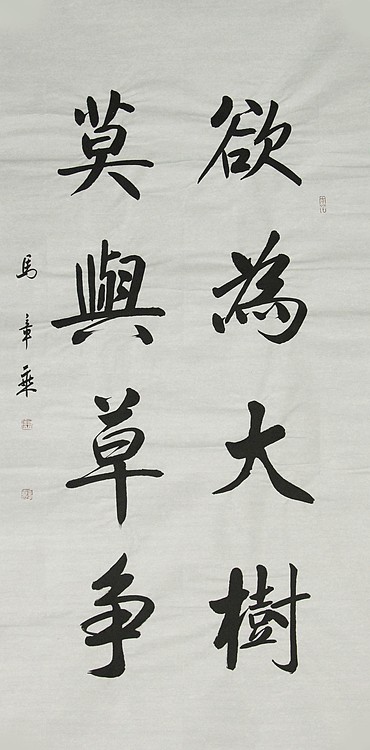 欲為大樹
莫與草争
馬章乘